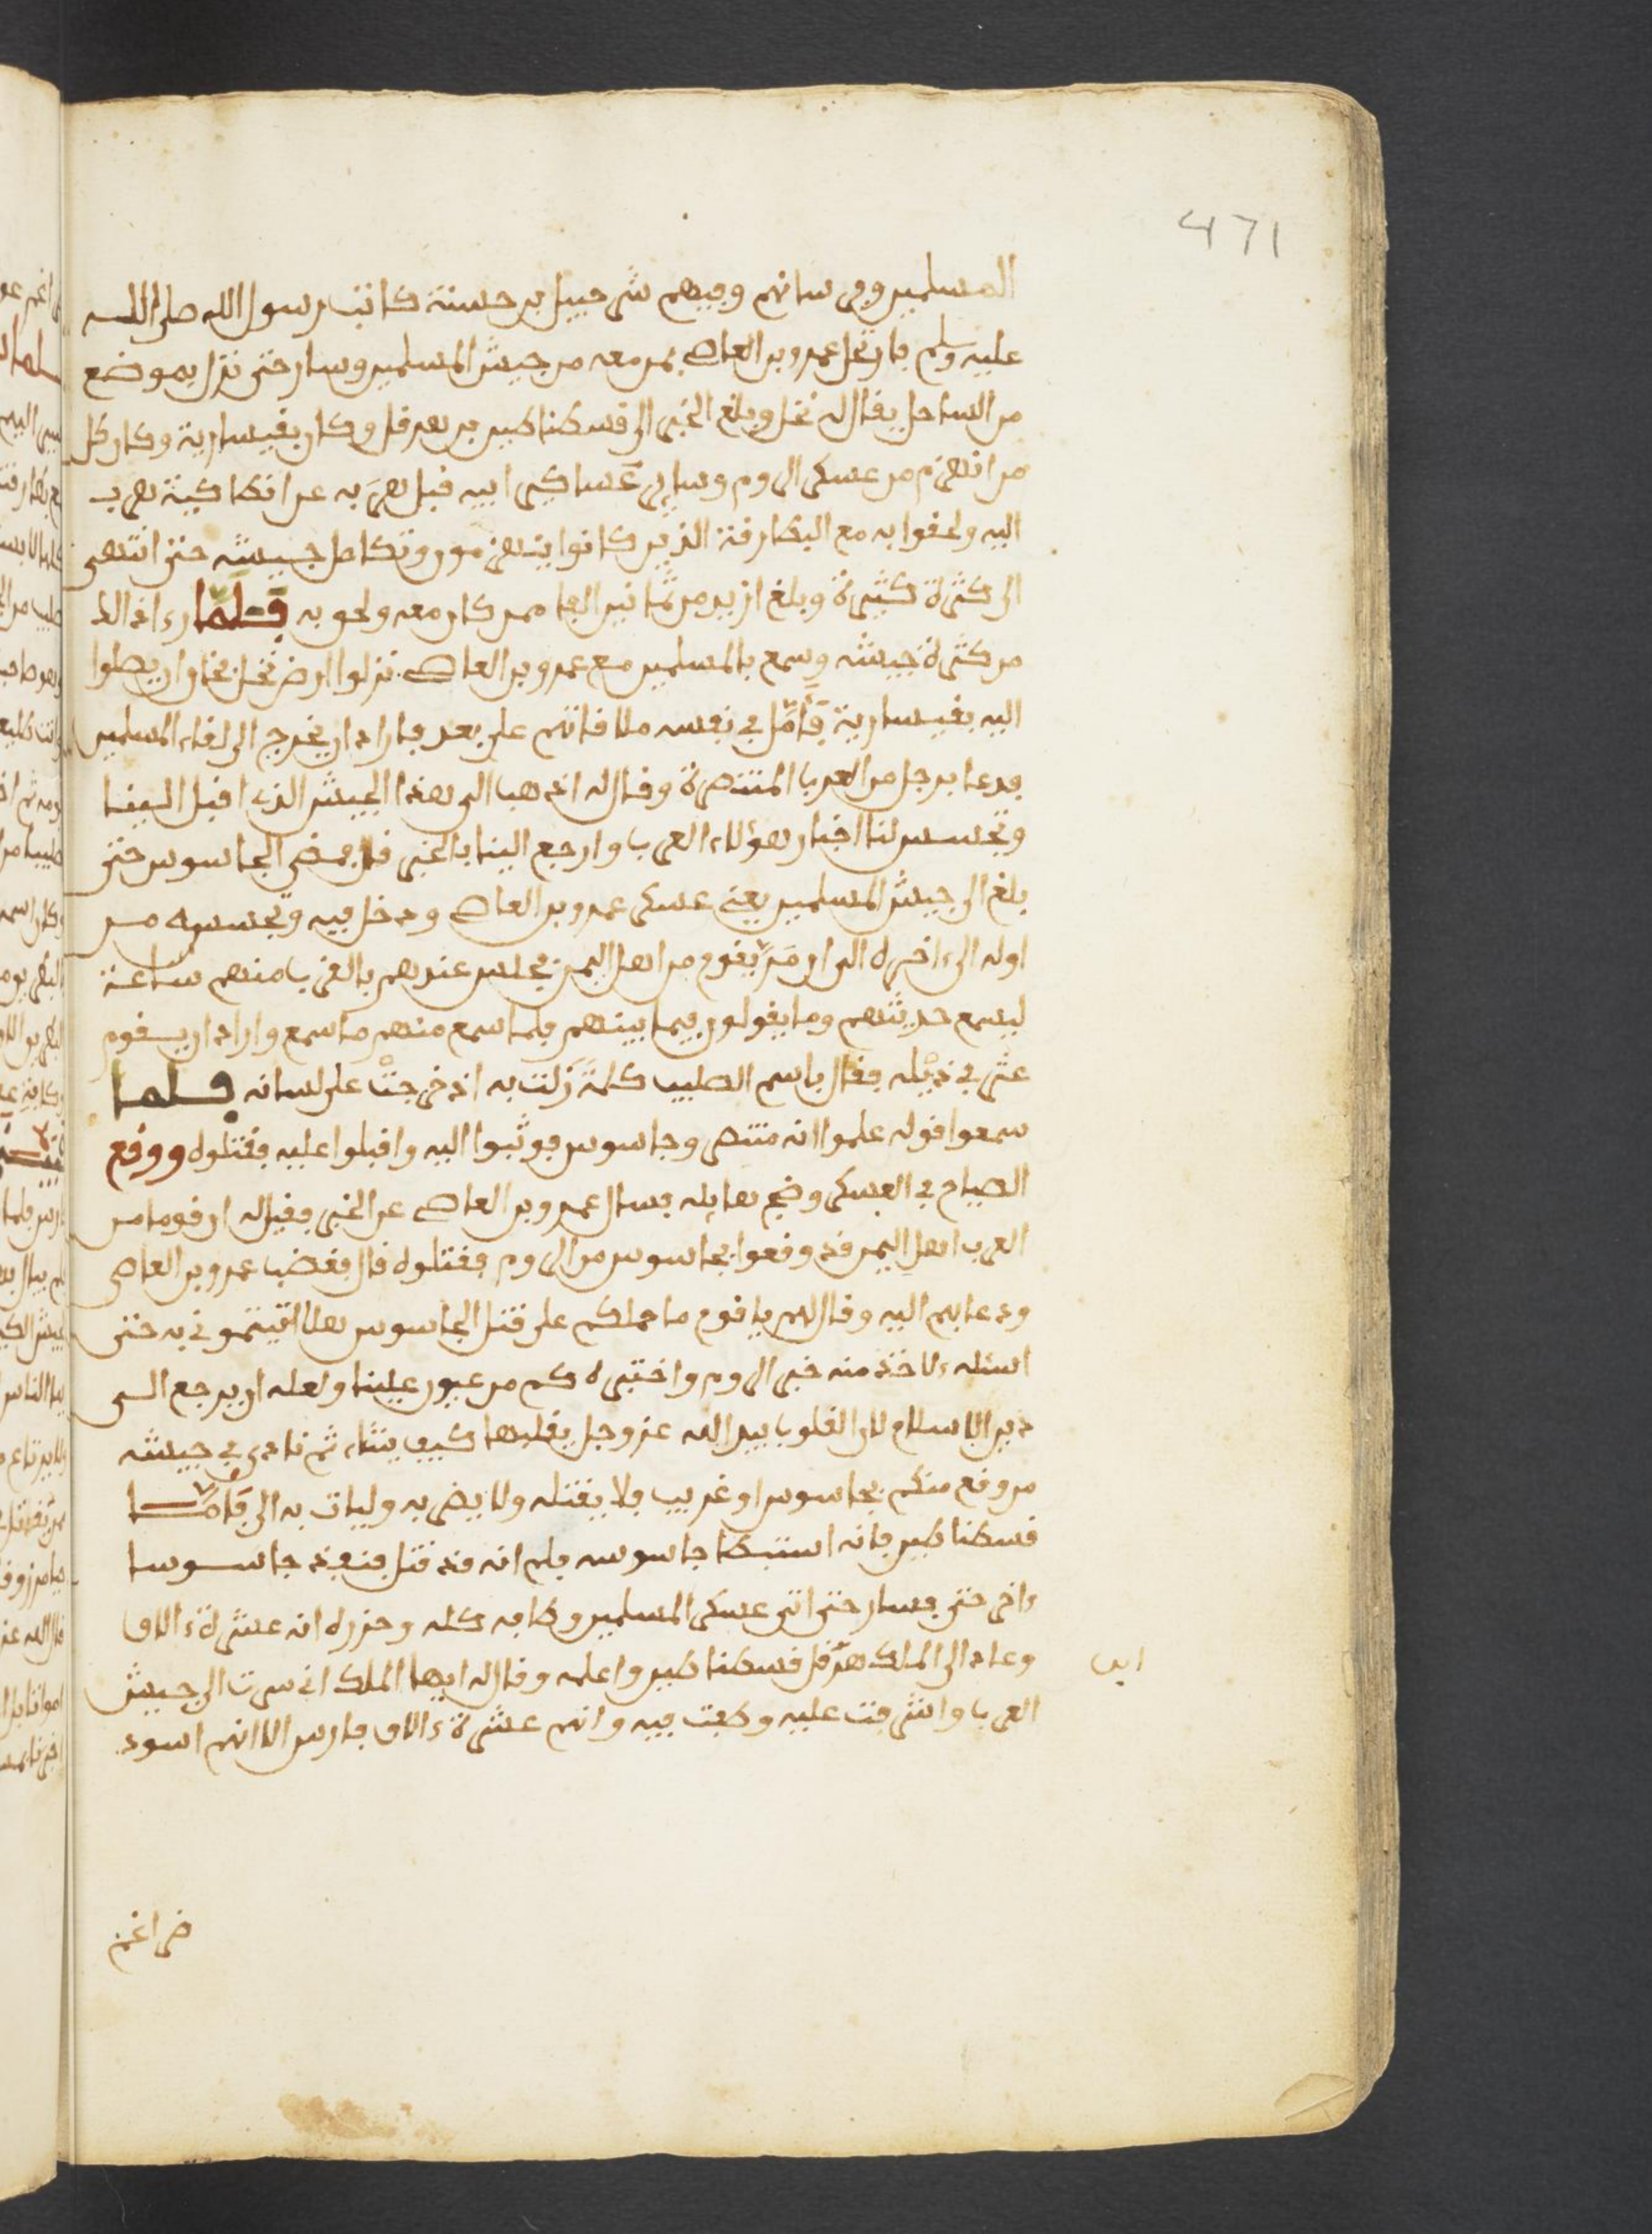 471
المسلمين وفرسانهم وفيهم شرحبيل بن حسنة كاتب رسول الله صلى الله
عليه وسلم فارتحل عمرو بن العاص بمن معه من جيش المسلمين وسار حتى نزل بموضع
من الساحل يقال له نخل وبلغ الخبر الى قسطنطين بن هرقل وكان بقيسارية وكان كل
من انهزم من عسكر الروم وساير عساكر ابيه قبل هربه عن انطاكية هرب
اليه ولحقوا به مع البطارقة الذين كانوا ينهزمون وتكامل جيشه حتى انتهى
الى كثرة كثيرة وبلغ ازيد من ثمانين الفا ممن كان معه ولحق به فلما رءا ذالك
من كثرة جيشه وسمع بالمسلمين مع عمرو بن العاص نزلوا ارض نخل فخاف ان يصلوا
اليه بقيسارية فامل في نفسه ملاقاتهم على بعد فاراد ان يخرج الى لقاء المسلمين
فدعا برجل من العرب المتنصرة وقال له اذهب الى هذا الجيش الذى اقبل الينا
وتجسس لنا اخبار هؤلاء العرب وارجع الينا بالخبر قال فمضى الجاسوس حتى
بلغ الى جيش المسلمين يعنى عسكر عمرو بن العاص ودخل فيه وتجسسه من
اوله الى ءاخره الى ان مر بقوم من اهل اليمن فجلس عندهم بالقرب منهم ساعة
ليسمع حديثهم وما يقولون فيما بينهم فلما سمع منهم ما سمع واراد ان يقوم
عثر في ذيله فقال باسم الصليب كلمة زلت به اذ خرجت على لسانه فلما
سمعوا قوله علموا انه متنصر وجاسوس فوثبوا اليه واقبلوا عليه فقتلوه ووقع
الصياح في العسكر وضج هايله فسال عمرو بن العاص عن الخبر فقيل له ان قوما من
العرب اهل اليمن قد وقعوا بجاسوس من الروم فقتلوه قال فغضب عمرو بن العاص
ودعا بهم اليه وقال لهم يا قوم ما حملكم على قتل الجاسوس هلا اتيتموني به حتى
اسئله ءلاخذ منه خبر الروم واختبره كم من عيون علينا ولعله ان يرجع الى
دين الاسلام لان القلوب بيد الله عز وجل يقلبها كيف يشاء ثم نادى في جيشه
من وقع منكم بجاسوس او غريب فلا يقتله ولا يضربه وليات به الي فامـــا
قسطنطين فانه استبطا جاسوسه فعلم انه قد قتل فنفذ جاسوسا
ءاخر حتى فسار حتى اتى عسكر المسلمين وطابه كله وحزره انه عشرة ءالاف
وعاد الى الملك هرقل قسطنطين واعلمه وقال له ايها الملك اني سرت الى جيش
ابن
العرب واشرفت عليه وطفت فيه وانهم عشرة ءالاف فارس الا انهم اسود
ضراغم